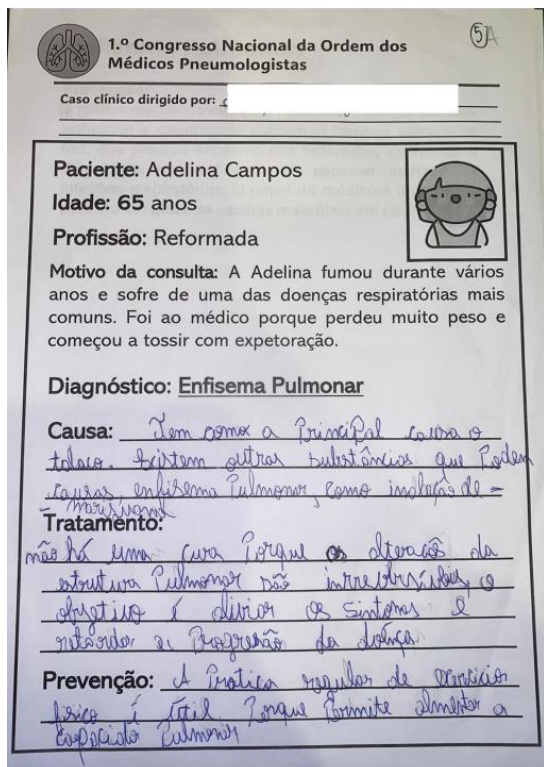 5A
1.º Congresso Nacional da Ordem dos
Médicos Pneumologistas
Caso clínico dirigido por:
Paciente: Adelina Campos
Idade: 65 anos
Profissão: Reformada
Motivo da consulta: A Adelina fumou durante vários
anos e sofre de uma das doenças respiratórias mais
comuns. Foi ao médico porque perdeu muito peso e
começou a tossir com expetoração.
Diagnóstico: Enfisema Pulmonar
Causa: Tem como a Principal causa o
tabaco. Existem outras substâncias que Podem
causas, enfisema Pulmonar, como inalação de =
= marijuana
Tratamento:
não há uma cura Porque as alteraçõs da
estrutura Pulmonar são
objetivo é aliviar os sintomas e
retardar a Progresão da doença
Prevenção: A Pratica regular de exercicio
fisico é útil Porque Permite a
Pulmonar